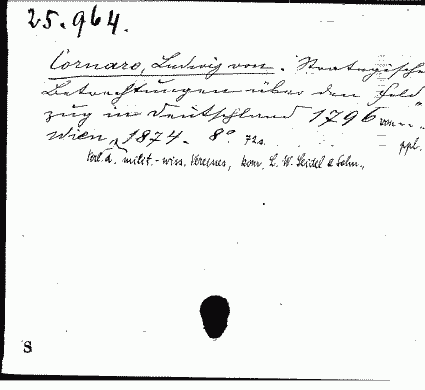 25.964.
Cornaro, Ludwig von. Strategische
Betrachtungen über den Feld
zug in Deutschland 1796 von..."
Wien, 1874. 8° 72s. ppl.
Verl. d. milit.-wiss. Vereines, kom. L. W. Seidel & Sohn.,
S